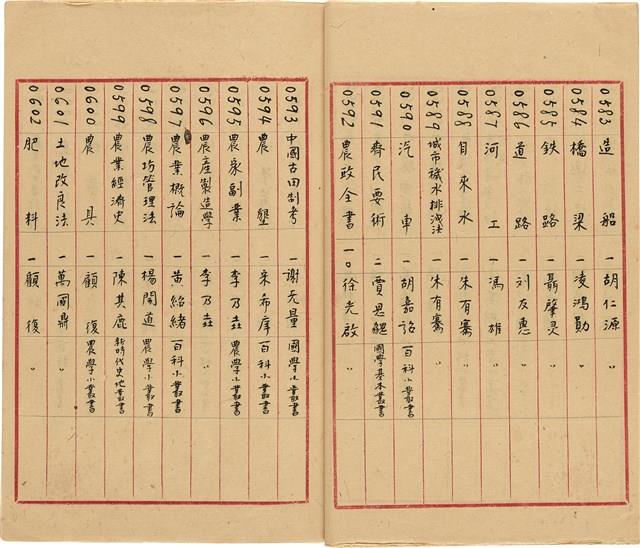 0583 造船 一 胡仁源 〃
0584 橋梁 一 凌鴻勛 〃
0585 鉄路 一 聶肇灵 〃
0586 道路 一 刘友惠 〃
0587 河工 一 馮雄 〃
0588 自來水 一 朱有騫 〃
0589 城市穢水排洩法 一 朱有騫 〃
0590 汽車 一 胡嘉詔 百科小叢書
0591 齊民要術 二 賈思勰 國學基本叢書
0592 農政全書 一〇 徐光啟 〃
0593 中國古田制考 一 謝无量 國學小叢書
0594 農墾 一 宋希庠 百科小叢書
0595 農家副業 一 李乃垚 農學小叢書
0596 農產製造學 一 李乃垚 〃
0597 農業概論 一 黃紹緒 百科小叢書
0598 農坊管理法 一 楊開道 農學小叢書
0599 農業經濟史 一 陳其鹿 新時代史地叢書
0600 農具 一 顧復 農學小叢書
0601 土地改良法 一 萬國鼎 〃
0602 肥料 一 顧復 〃